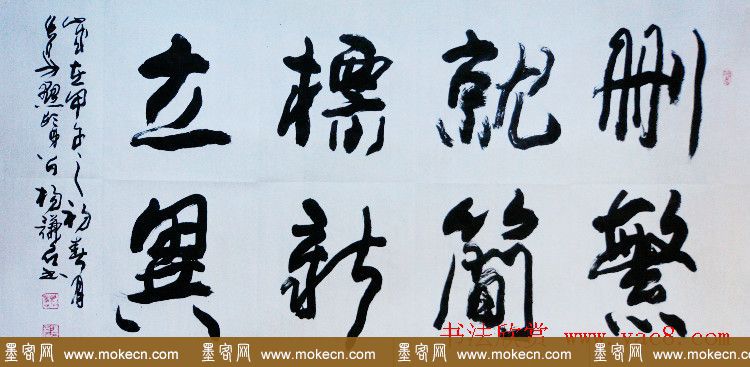 删繁
就簡
標新
立異
歲在甲午之初春月
书法欣赏 www.yac8.com
墨客网 www.mokecn.com 墨客网 www.mokecn.com 墨客网 www.mokecn.com 墨客网 www.mokecn.com